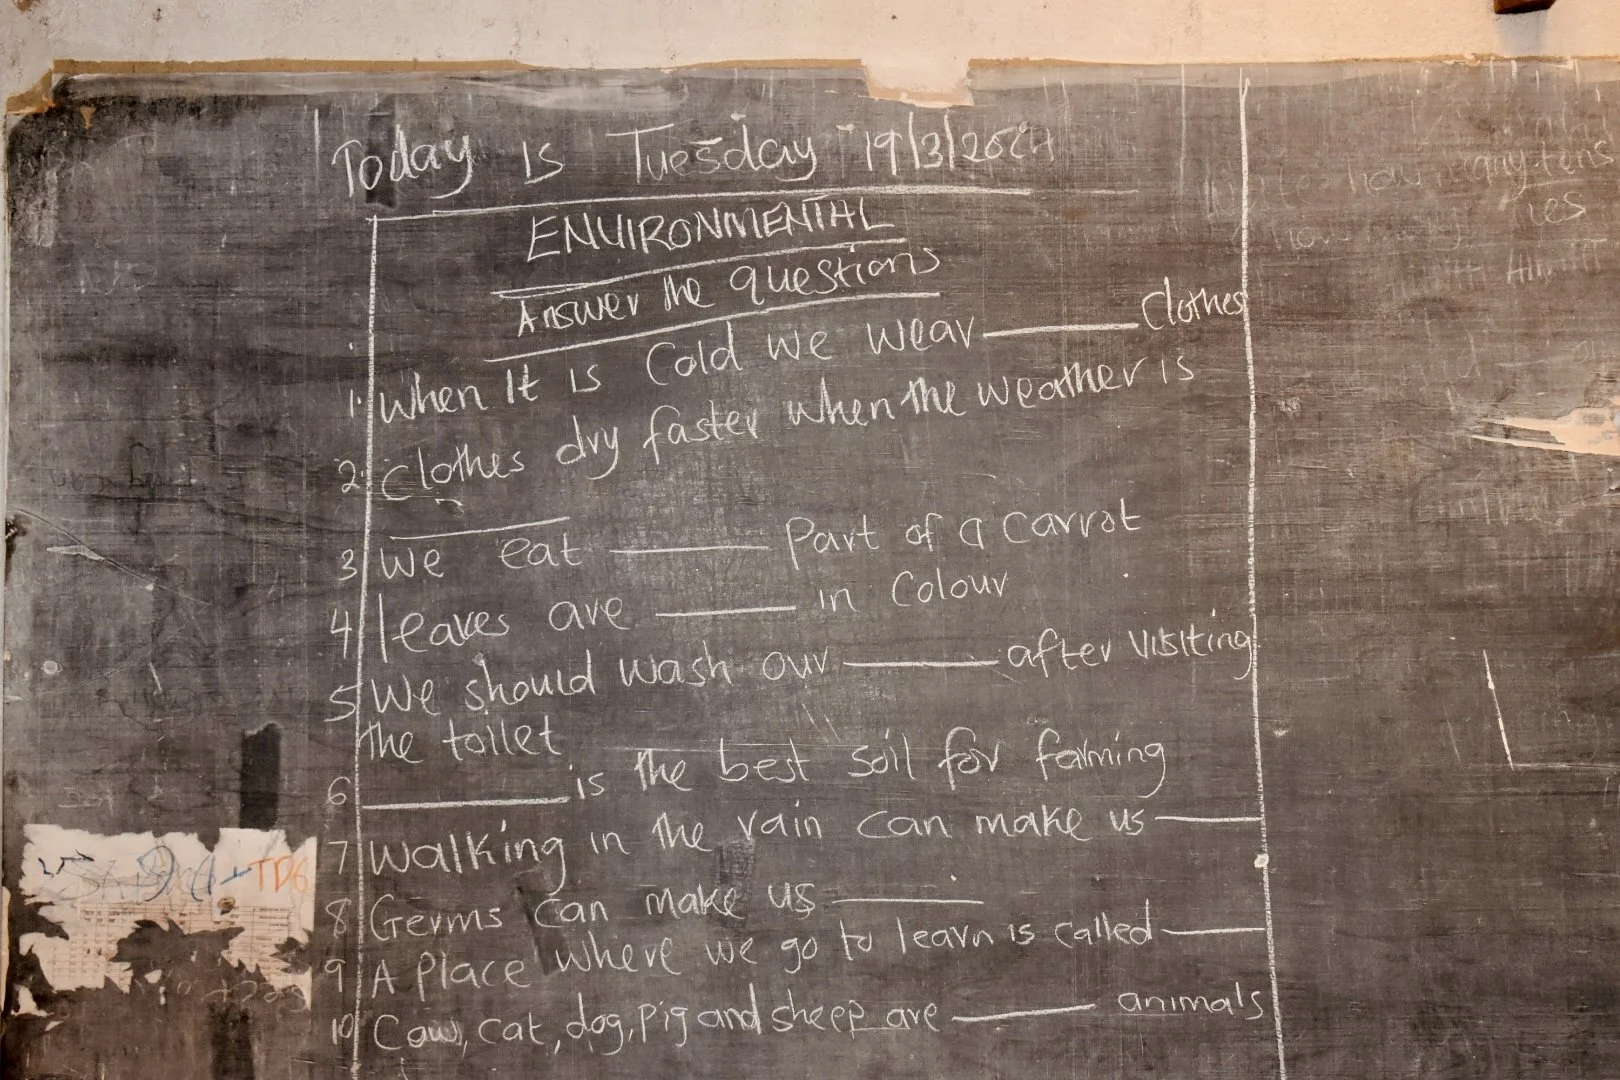 Today is Tuesday 19/3/2024
ENVIRONMENTAL
Answer the questions
1. When it is cold we wear ______ clothes
2. Clothes dry faster when the weather is
______
3 We eat ______ part of a carrot
4 leaves are ______ in colour
5 We should wash our ______ after visiting
the toilet
6 ______ is the best soil for farming
7 Walking in the rain can make us ______
8 Germs can make us ______
9 A place where we go to learn is called ______
10 Cow, cat, dog, pig and sheep are ______ animals
how many tens